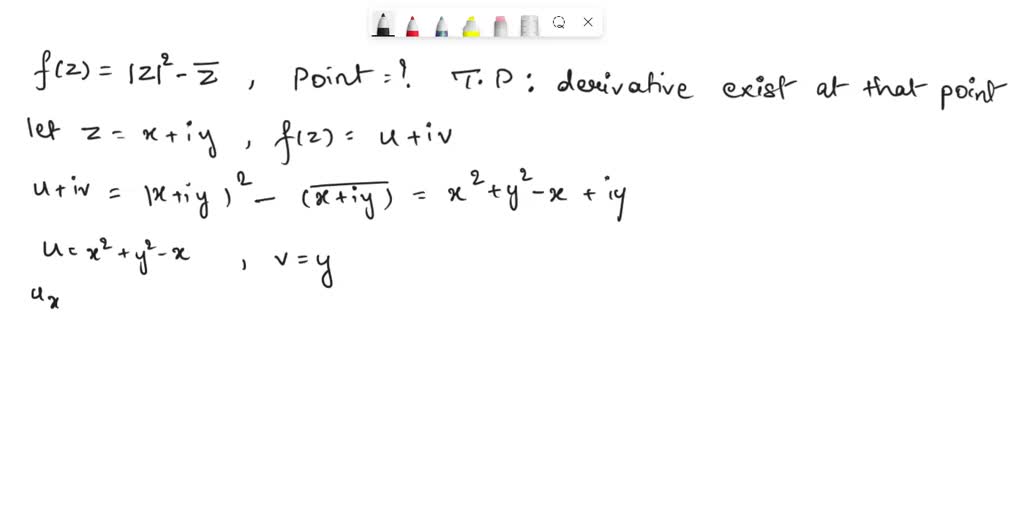 f(z) = |z|² - z̅ , Point = ? T.P : derivative exist at that point
let z = x + iy , f(z) = u + iv
u + iv = |x + iy)² - (x̅ ̅+̅ ̅i̅y̅) = x² + y² - x + iy
u = x² + y² - x , v = y
uₓ